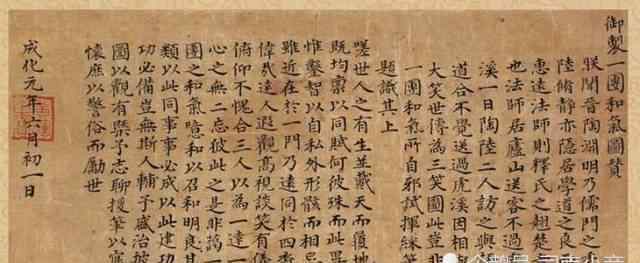 御製一團和氣圖贊
朕聞晉陶淵明乃儒門之
陸脩靜亦隱居學道之良
惠遠法師則釋氏之翹楚
也法師居廬山送客不過
溪一日陶陸二人訪之與
道合不覺送過虎溪因相
大笑世傳為三笑圖此豈非
一團和氣所自邪試揮綵筆
題識其上
嗟世人之有生並戴天而履地
既均稟以同賦何彼殊而此異
惟鑿智以自私外形骸而相忌
雖近在於一門乃遠同於四裔
偉哉達人遐觀高視談笑有儀
俯仰不愧合三人以為一達一
心之無二忘彼此之是非藹一
團之和氣噫和以召和明良其
類以此同事事必成以此建功
功必備豈無斯人輔予盛治披
圖以觀有槩予志聊援筆以寫
懷庶以警俗而勵世
成化元年六月初一日